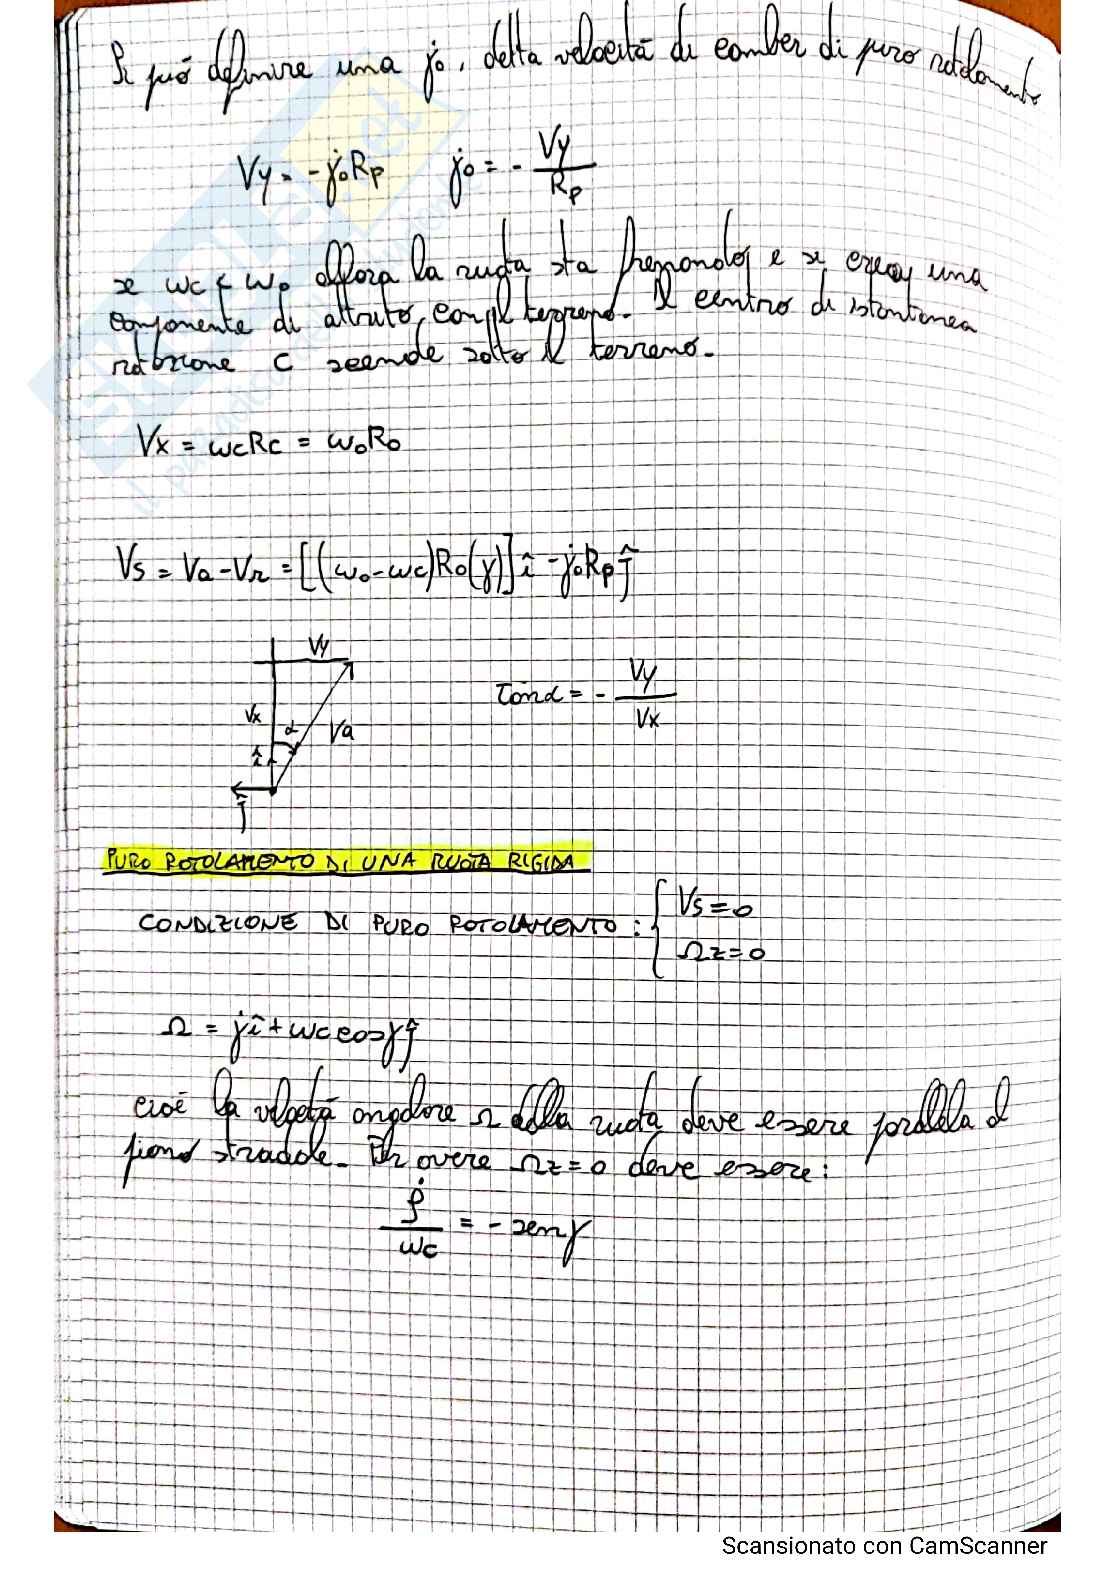 Si può definire una γ̇₀, detta velocità di camber di puro rotolamento
Vy = -γ̇₀Rp γ̇₀ = - Vy/Rp
se ωc < ω₀ allora la ruota sta frenando e si crea una
componente di attrito, con il terreno. Il centro di istantanea
rotazione C scende sotto il terreno.
Vx = ωcRc = ω₀R₀
Vs = Va - Vr = [(ω₀ - ωc)R₀(γ)]î - γ̇₀Rpĵ
Vy
Vx α Va
î
ĵ
Tanα = - Vy/Vx
PURO ROTOLAMENTO DI UNA RUOTA RIGIDA
CONDIZIONE DI PURO ROTOLAMENTO: { Vs = 0
Ωz = 0
Ω = γ̇î + ωc cosγĵ
cioè la velocità angolare Ω della ruota deve essere parallela al
piano stradale. Per avere Ωz = 0 deve essere:
ρ̇/ωc = - senγ
Scansionato con CamScanner